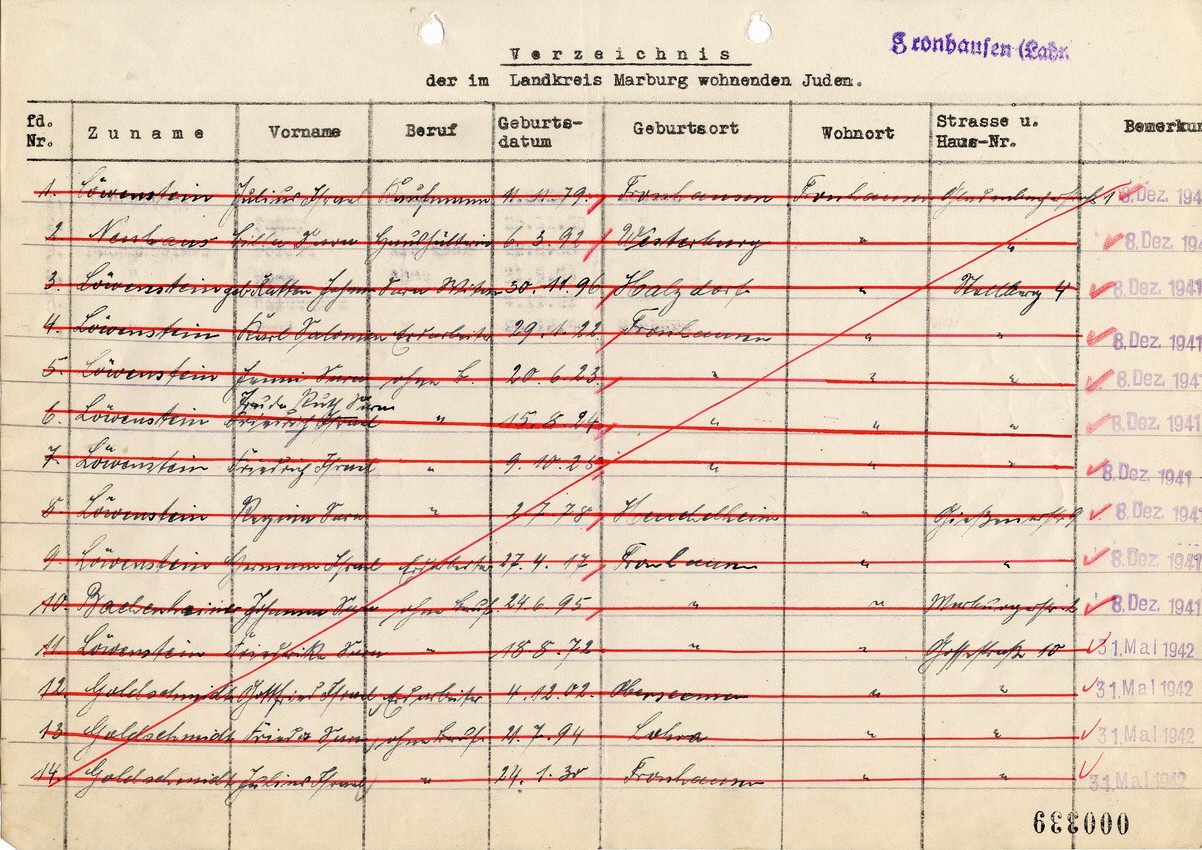 Fronhausen (Lahn
Verzeichnis
der im Landkreis Marburg wohnenden Juden.
fd. Nr. Zuname Vorname Beruf Geburts-datum Geburtsort Wohnort Strasse u. Haus-Nr. Bemerkun
1. Löwenstein Julius Israel Kaufmann 11.11.79. Fronhausen Fronhausen 8. Dez. 194
2. Neuhaus Sara Haushälterin 6.3.92 Westerburg " " 8. Dez. 194
3. Löwenstein geb. Katten Sara 30.11.96 Halsdorf " Stollberg 4 8. Dez. 1941
4. Löwenstein Karl Salomon Erdarbeiter 29.1.22 Fronhausen " " 8. Dez. 1941
5. Löwenstein Jenni Sara ohne B. 20.6.23. " " " 8. Dez. 1941
Trude Ruth Sara
6. Löwenstein Friedrich Israel " 15.8.24 " " " 8. Dez. 1941
7. Löwenstein Friedrich Israel " 9.10.28 " " " 8. Dez. 1941
8. Löwenstein Regina Sara " 2.7.78 Heuchelheim " Gießenerstr 9 8. Dez. 1941
9. Löwenstein Hermann Israel Erdarbeiter 27.4.17 Fronhausen " " 8. Dez. 1941
10. Bachenheimer Johanna Sara ohne Beruf 24.6.95 " " Marburgerstr 8. Dez. 1941
11. Löwenstein Friedrike Sara " 18.8.72 " " 10 31. Mai 1942
12. Goldschmidt Gottfried Israel Erdarbeiter 4.12.02. Oberseemen " " 31. Mai 1942
13. Goldschmidt Frieda Sara ohne Beruf 21.7.94 Lohra " " 31. Mai 1942
14. Goldschmidt Julius Israel " 24.1.30 Fronhausen " " 31. Mai 1942
000339